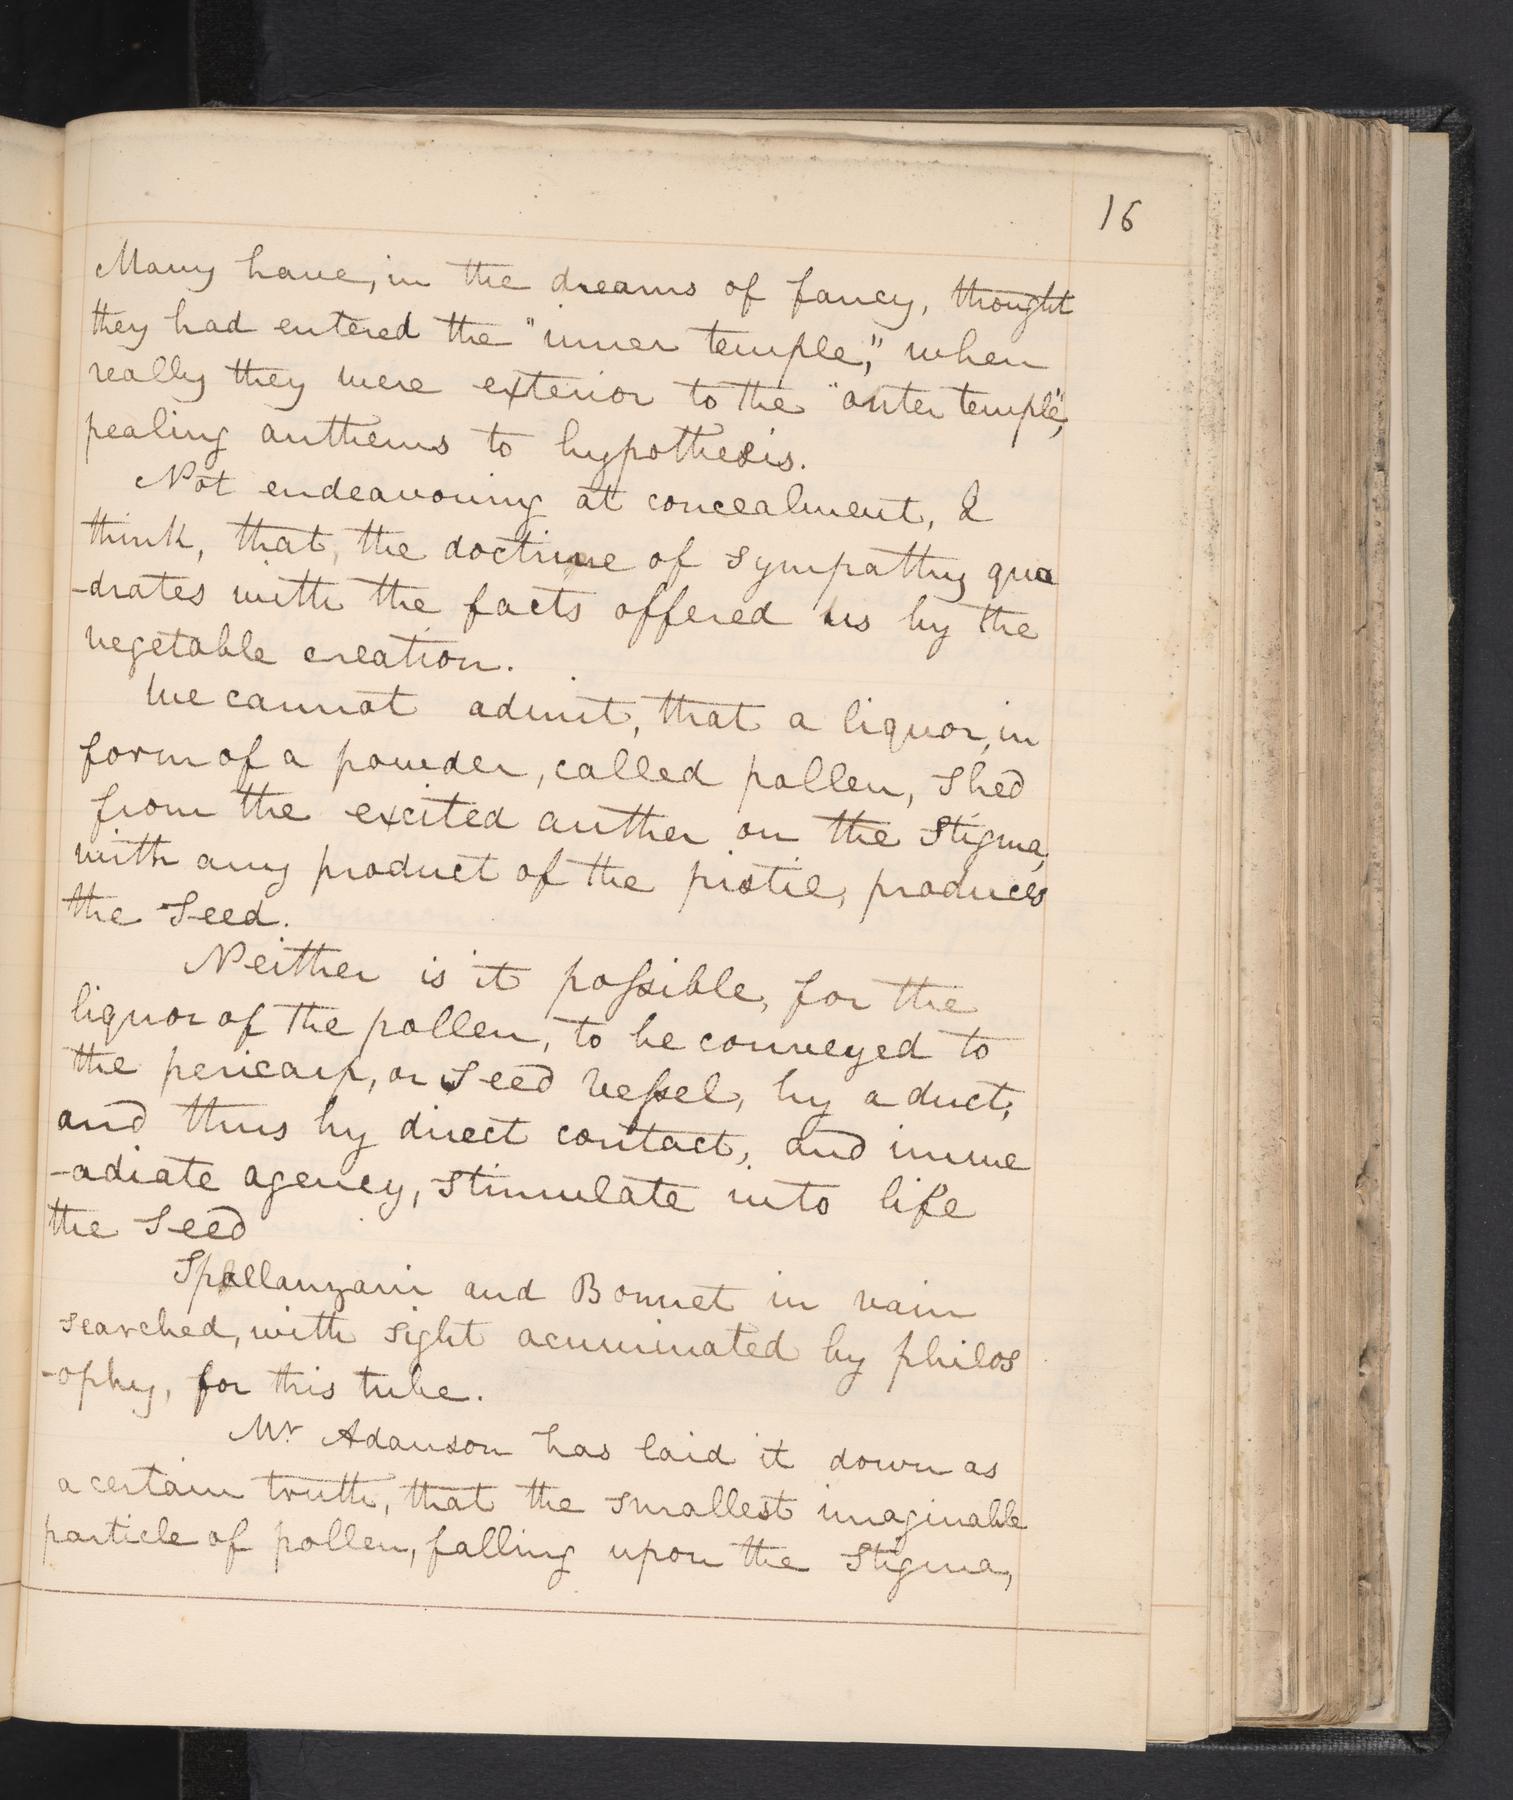 16
Many have, in the dreams of fancy, thought
they had entered the "inner temple," when
really they were exterior to the "outer temple,"
pealing anthems to hypothesis.
Not endeavouring at concealment, I
think, that, the doctrine of sympathy qua
-drates with the facts offered us by the
vegetable creation.
We cannot admit, that a liquor, in
form of a powder, called pollen, shed
from the excited anther on the Stigma,
with any product of the pistil, produces
the Seed.
Neither is it possible, for the
liquor of the pollen, to be conveyed to
the pericarp, or Seed Vessel, by a duct,
and thus by direct contact, and imme
-adiate agency, stimulate into life
the Seed
Spallanzani and Bonnet in vain
searched, with sight acuminated by philos
-ophy, for this tube.
Mr Adanson has laid it down as
a certain truth, that the smallest imaginable
particle of pollen, falling upon the Stigma,